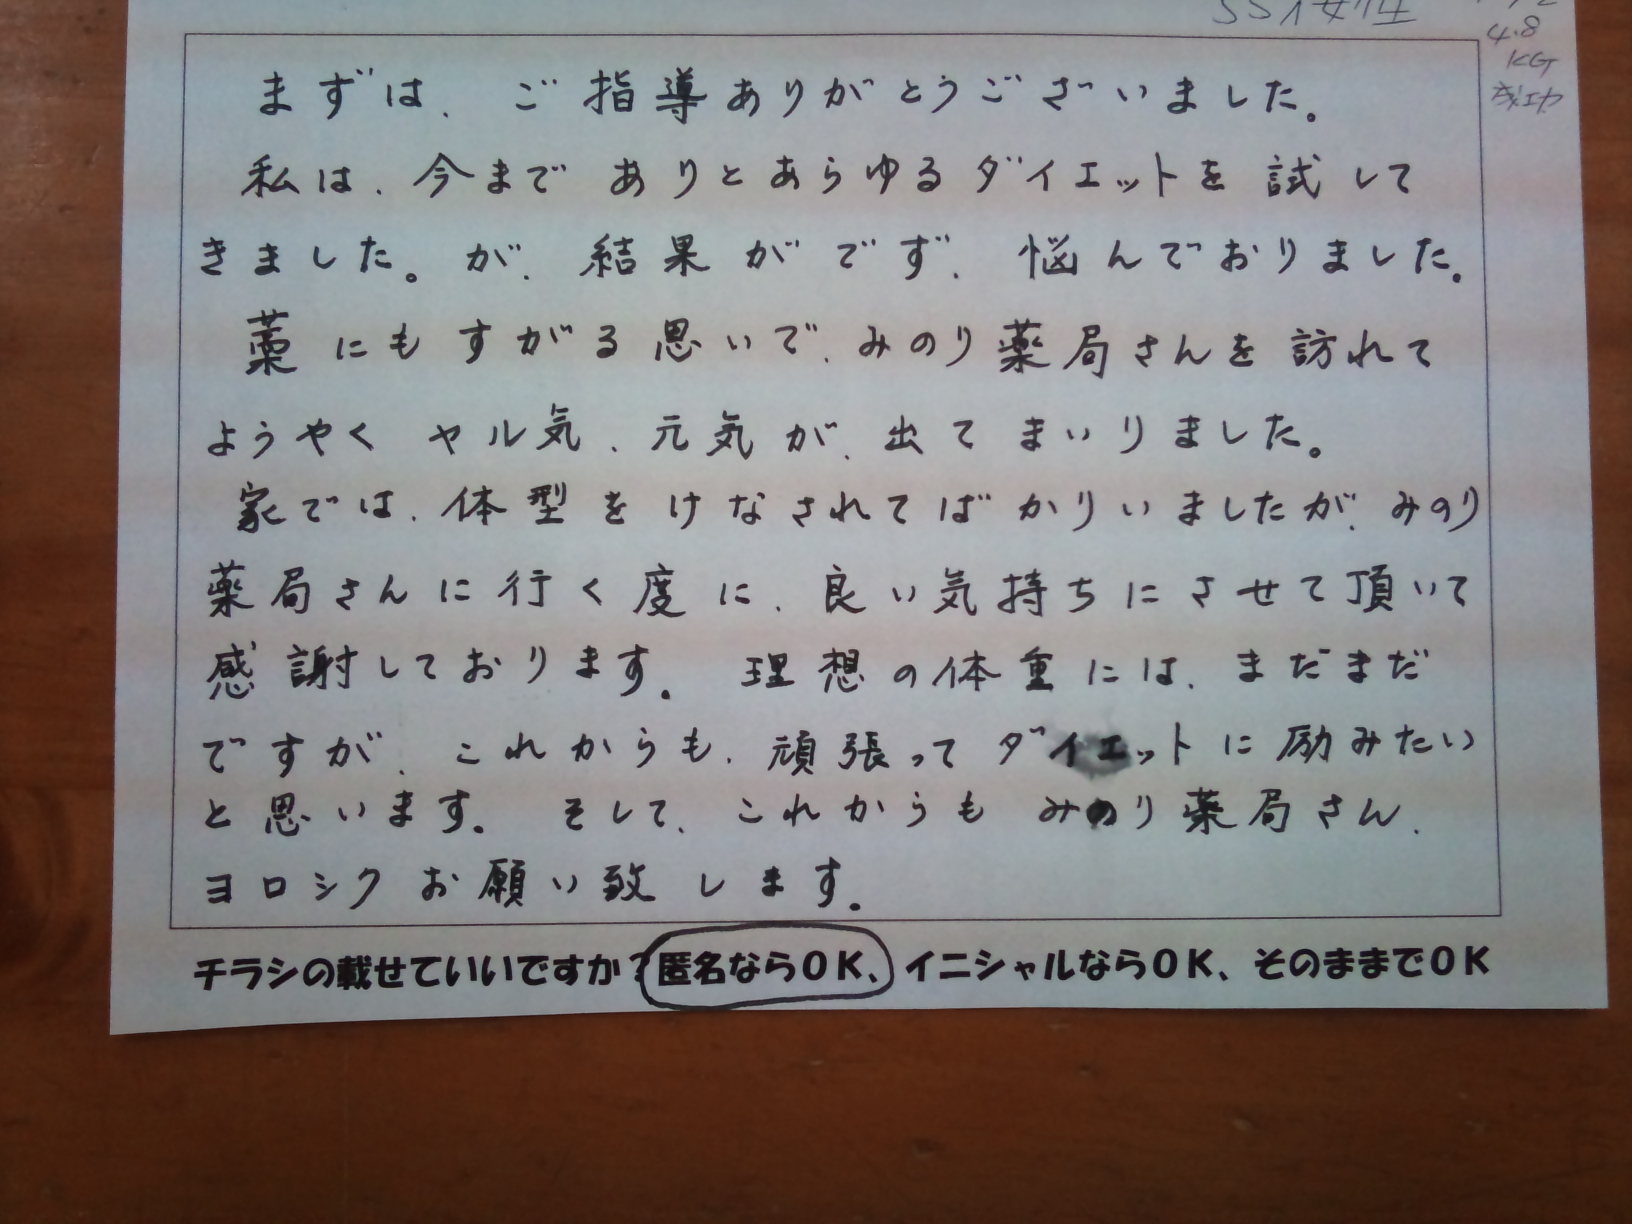 4.8
KG
成功
まずは、ご指導ありがとうございました。
私は、今まで ありとあらゆるダイエットを 試して
きました。が、結果がでず、悩んでおりました。
藁にもすがる思いで、みのり薬局さんを訪れて
ようやく ヤル気、元気が、出てまいりました。
家では、体型をけなされてばかりいましたが、みのり
薬局さんに行く度に、良い気持ちにさせて頂いて
感謝しております。 理想の体重には、まだまだ
ですが、これからも、頑張ってダイエットに励みたい
と思います。 そして、これからも みのり薬局さん、
ヨロシクお願い致します。
チラシの載せていいですか?匿名ならOK、イニシャルならOK、そのままでOK